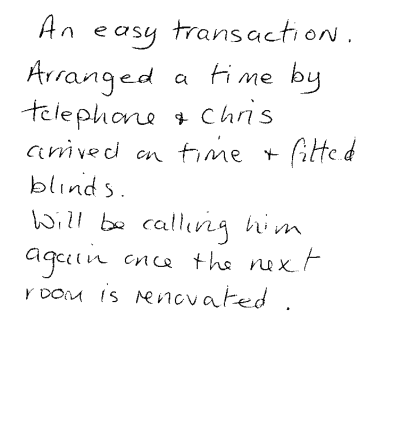 An easy transaction.
Arranged a time by
telephone & Chris
arrived on time + fitted
blinds.
Will be calling him
again once the next
room is renovated.